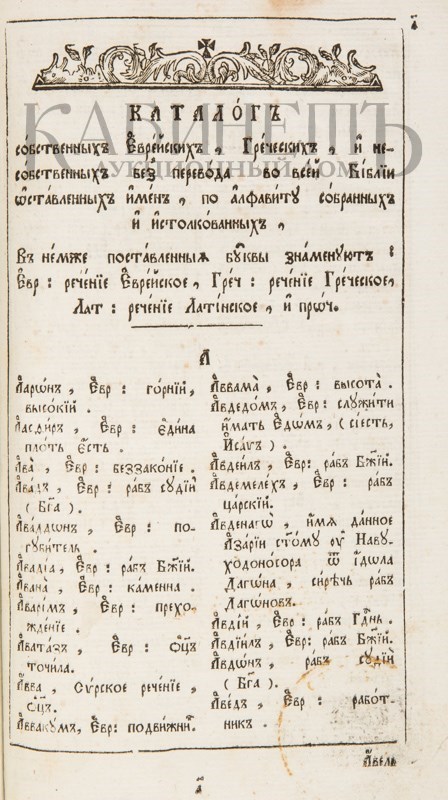 КАТАЛО́ГЪ
со́бственныхъ Є҆вре́йскихъ, Гре́ческихъ, и҆ не-
со́бственныхъ без̾ перево́да во все́й Бі́блїи
ѡ҆ста́вленныхъ и҆ме́нъ, по а҆лфави́ту со́бранныхъ
и҆ и҆столко́ванныхъ,
Въ не́мже поста́вленныѧ бꙋ́квы зна́менꙋютъ :
Є҆вр : рече́нїе Є҆вре́йское, Греч : рече́нїе Гре́ческое,
Лат : рече́нїе Латі́нское, и҆ про́ч.
А
А҆арѡ́нъ, Є҆вр : го́рнїй,
высо́кїй .
А҆асфи́ръ, Є҆вр : є҆ди́на
пло́ть є҆́сть .
А҆ва̀, Є҆вр : беззако́нїе .
А҆ва́дъ, Є҆вр : ра́бъ сꙋдїѝ
( Бг҃а ) .
А҆ваддѡ́нъ, Є҆вр : по-
гꙋби́тель .
А҆ваді́а, Є҆вр : ра́бъ Бж҃їй.
А҆вана̀, Є҆вр : ка́менна .
А҆варі́мъ, Є҆вр : прехо-
жде́нїе .
А҆вата́зъ, Є҆вр : ѻ҆ц҃ъ
точи́ла.
А҆́вва, Сѵ́рское рече́нїе,
ѻ҆ц҃ъ.
А҆ввакꙋ́мъ, Є҆вр: подви́жни҃.
А҆ввама̀, Є҆вр : высота̀ .
А҆вдедо́мъ, Є҆вр : слꙋжи́ти
и҆́мать Є҆дѡ́мъ, ( сїе́сть,
И҆са́ѵъ ) .
А҆вдеи́лъ, Є҆вр: ра́бъ Бж҃їй.
А҆вдемеле́хъ, Є҆вр : ра́бъ
ца́рскїй.
А҆вденагѡ̀, и҆́мѧ да́нное
А҆за́рїи ст҃о́мꙋ ѿ Навꙋ-
ходоно́сора ѿ і҆́дѡла
Дагѡ́на, си́рѣчь ра́бъ
Дагѡ́новъ.
А҆вді́й, Є҆вр : ра́бъ Гд҃нь.
А҆вдїи́лъ, Є҆вр: ра́бъ Бж҃їй.
А҆вдѡ́нъ, ра́бъ сꙋдїѝ
( Бг҃а ) .
А҆ве́дъ, Є҆вр : рабо́т-
никъ .
А҆́вель
КАБИНЕТЪ
АУКЦИОННЫЙ ДОМ